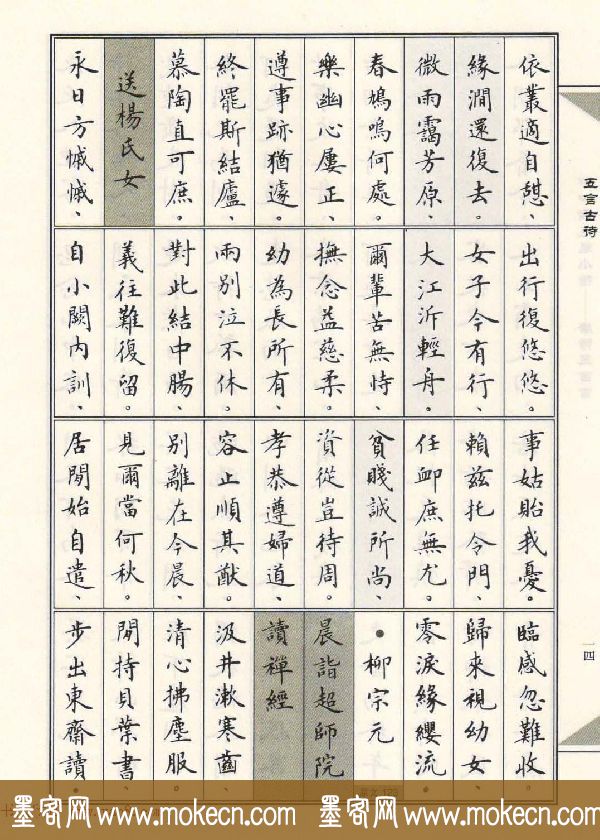 五言古诗
依叢適自憇、
緣澗還復去。
微雨靄芳原、
春鳩鳴何處。
樂幽心屢正、
遵事跡猶遽。
終罷斯結廬、
慕陶直可庶。
送楊氏女
永日方慽慽、
出行復悠悠。
女子今有行、
大江泝輕舟。
爾輩苦無恃、
撫念益慈柔。
幼為長所有、
兩別泣不休。
對此結中腸、
義往難復留。
自小闕內訓、
事姑貽我憂。
賴茲托令門、
任卹庶無尤。
貧賤誠所尚、
資從豈待周。
孝恭遵婦道、
容止順其猷。
別離在今晨、
見爾當何秋。
居閒始自遣、
臨感忽難收。
歸來視幼女、
零淚緣纓流。
•柳宗元
晨詣超師院
讀禪經
汲井漱寒齒、
清心拂塵服。
閒持貝葉書、
步出東齋讀。
一四
墨客网 www.mokecn.com 墨客网 www.mokecn.com